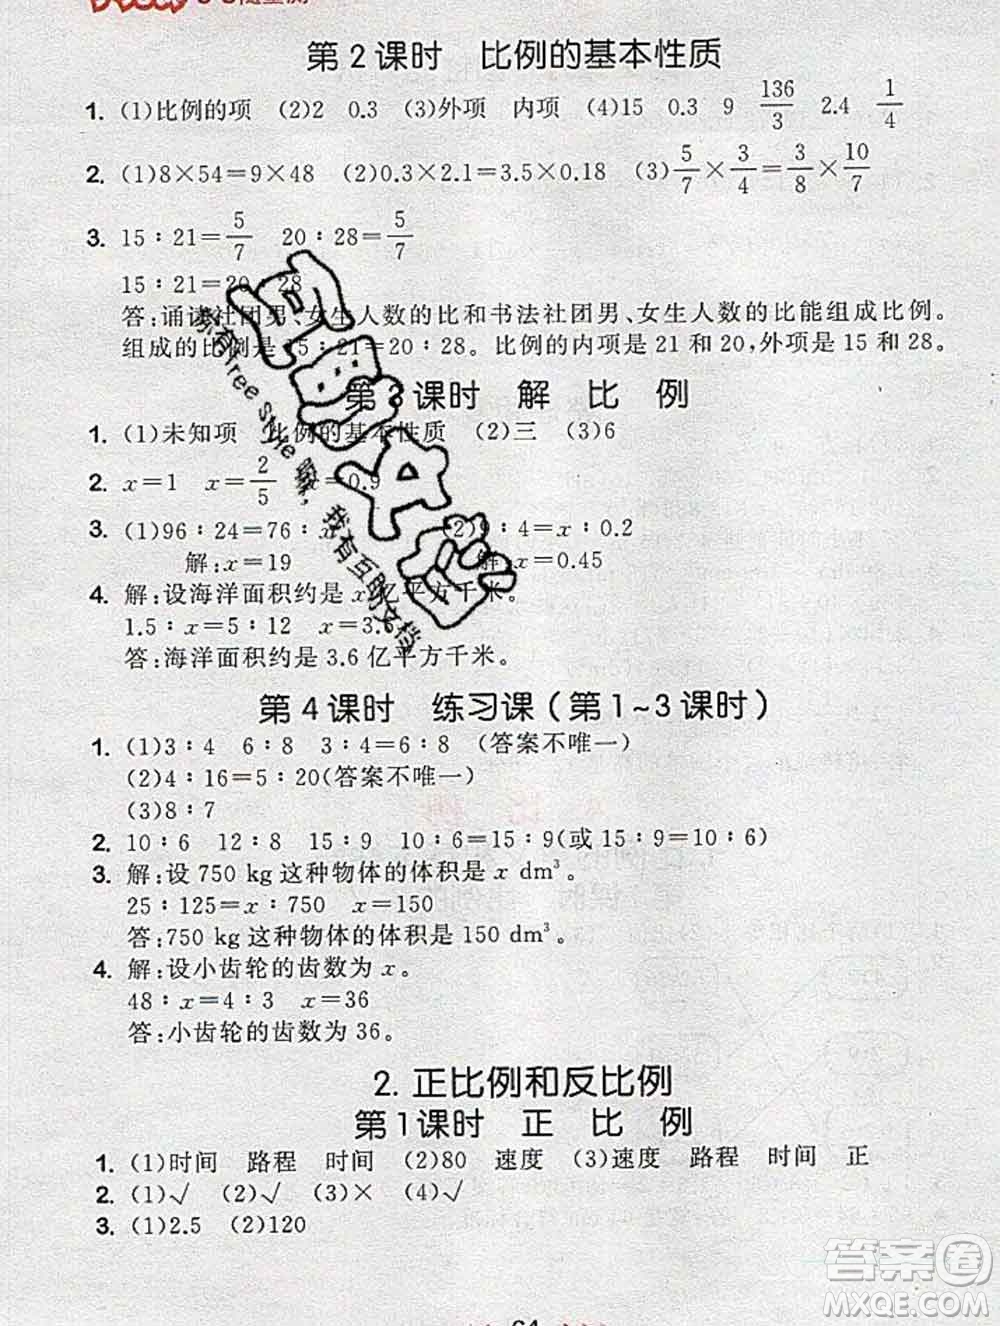 第2课时 比例的基本性质
1. (1)比例的项 (2)2 0.3 (3)外项 内项 (4)15 0.3 9 136/3 2.4 1/4
2. (1)8×54=9×48 (2)0.3×2.1=3.5×0.18 (3)5/7×3/4=3/8×10/7
3. 15∶21=5/7 20∶28=5/7
15∶21=20∶28
答:诵读社团男、女生人数的比和书法社团男、女生人数的比能组成比例。
组成的比例是15∶21=20∶28。比例的内项是21和20,外项是15和28。
第3课时 解比例
1. (1)未知项 比例的基本性质 (2)三 (3)6
2. x=1 x=2/5 x=0.9
3. (1)96∶24=76∶x (2)9∶4=x∶0.2
解:x=19 解:x=0.45
4. 解:设海洋面积约是x亿平方千米。
1.5∶x=5∶12 x=3.6
答:海洋面积约是3.6亿平方千米。
第4课时 练习课(第1~3课时)
1. (1)3∶4 6∶8 3∶4=6∶8 (答案不唯一)
(2)4∶16=5∶20(答案不唯一)
(3)8∶7
2. 10∶6 12∶8 15∶9 10∶6=15∶9(或15∶9=10∶6)
3. 解:设750 kg这种物体的体积是x dm³。
25∶125=x∶750 x=150
答:750 kg这种物体的体积是150 dm³。
4. 解:设小齿轮的齿数为x。
48∶x=4∶3 x=36
答:小齿轮的齿数为36。
2. 正比例和反比例
第1课时 正比例
1. (1)时间 路程 时间 (2)80 速度 (3)速度 路程 时间 正
2. (1)√ (2)√ (3)× (4)√
3. (1)2.5 (2)120
答案圈
MXQE.COM
64